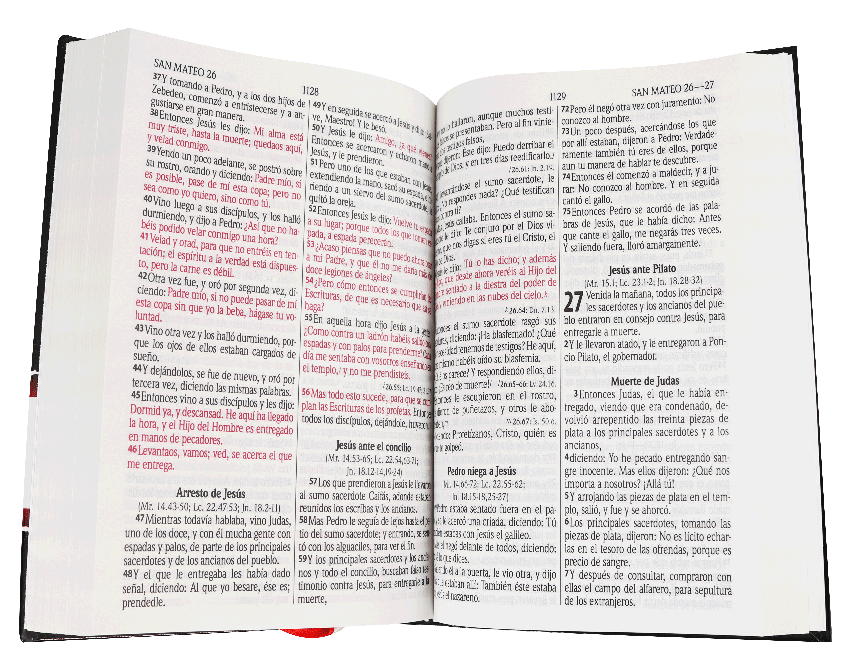 SAN MATEO 26
1128
37Y tomando a Pedro, y a los dos hijos de
Zebedeo, comenzó a entristecerse y a an-
gustiarse en gran manera.
38Entonces Jesús les dijo: Mi alma está
muy triste, hasta la muerte; quedaos aquí,
y velad conmigo.
39Yendo un poco adelante, se postró sobre
su rostro, orando y diciendo: Padre mío, si
es posible, pase de mí esta copa; pero no
sea como yo quiero, sino como tú.
40Vino luego a sus discípulos, y los halló
durmiendo, y dijo a Pedro: ¿Así que no ha-
béis podido velar conmigo una hora?
41Velad y orad, para que no entréis en ten-
tación; el espíritu a la verdad está dispues-
to, pero la carne es débil.
42Otra vez fue, y oró por segunda vez, di-
ciendo: Padre mío, si no puede pasar de mí
esta copa sin que yo la beba, hágase tu vo-
luntad.
43Vino otra vez y los halló durmiendo, por-
que los ojos de ellos estaban cargados de
sueño.
44Y dejándolos, se fue de nuevo, y oró por
tercera vez, diciendo las mismas palabras.
45Entonces vino a sus discípulos y les dijo:
Dormid ya, y descansad. He aquí ha llegado
la hora, y el Hijo del Hombre es entregado
en manos de pecadores.
46Levantaos, vamos; ved, se acerca el que
me entrega.
Arresto de Jesús
(Mr. 14.43-50; Lc. 22.47-53; Jn. 18.2-11)
47Mientras todavía hablaba, vino Judas,
uno de los doce, y con él mucha gente con
espadas y palos, de parte de los principales
sacerdotes y de los ancianos del pueblo.
48Y el que le entregaba les había dado
señal, diciendo: Al que yo besare, ése es;
prendedle.
49Y en seguida se acercó a Jesús y dijo:
ve, Maestro! Y le besó.
50Y Jesús le dijo: Amigo, ¿a qué vienes?
Entonces se acercaron y echaron mano a
Jesús, y le prendieron.
51Pero uno de los que estaban con Jesús,
extendiendo la mano, sacó su espada, e hi-
riendo a un siervo del sumo sacerdote, le
quitó la oreja.
52Entonces Jesús le dijo: Vuelve tu espada
a su lugar; porque todos los que tomen es-
pada, a espada perecerán.
53¿Acaso piensas que no puedo ahora orar
a mi Padre, y que él no me daría más de
doce legiones de ángeles?
54¿Pero cómo entonces se cumplirían las
Escrituras, de que es necesario que así se
haga?
55En aquella hora dijo Jesús a la gente:
¿Como contra un ladrón habéis salido con
espadas y con palos para prenderme? Cada
día me sentaba con vosotros enseñando en
el templo, y no me prendisteis.
56Mas todo esto sucede, para que se cum-
plan las Escrituras de los profetas. Entonces
todos los discípulos, dejándole, huyeron.
Jesús ante el concilio
(Mr. 14.53-65; Lc. 22.54,63-71;
Jn. 18.12-14,19-24)
57Los que prendieron a Jesús le llevaron
al sumo sacerdote Caifás, adonde estaban
reunidos los escribas y los ancianos.
58Mas Pedro le seguía de lejos hasta el pa-
tio del sumo sacerdote; y entrando, se sen-
tó con los alguaciles, para ver el fin.
59Y los principales sacerdotes y los ancia-
nos y todo el concilio, buscaban falso tes-
timonio contra Jesús, para entregarle a la
muerte,
1129
SAN MATEO 26—27
hallaron, aunque muchos testi-
se presentaban. Pero al fin vinie-
testigos falsos,
dijeron: Éste dijo: Puedo derribar el
de Dios, y en tres días reedificarlo.
26.61: Jn. 2.19.
levantándose el sumo sacerdote, le
¿No respondes nada? ¿Qué testifican
contra ti?
callaba. Entonces el sumo sa-
le dijo: Te conjuro por el Dios vi-
que nos digas si eres tú el Cristo, el
de Dios.
le dijo: Tú lo has dicho; y además
que desde ahora veréis al Hijo del
sentado a la diestra del poder de
y viniendo en las nubes del cielo.
26.64: Dn. 7.13.
el sumo sacerdote rasgó sus
diciendo: ¡Ha blasfemado! ¿Qué
necesidad tenemos de testigos? He aquí,
mismo habéis oído su blasfemia.
os parece? Y respondiendo ellos, di-
¡Es reo de muerte! 26.65-66: Lv. 24.16.
le escupieron en el rostro,
dieron de puñetazos, y otros le abo-
26.67: Is. 50.6.
diciendo: Profetízanos, Cristo, quién es
te golpeó.
Pedro niega a Jesús
Mr. 14.66-72; Lc. 22.55-62;
Jn. 18.15-18,25-27)
Pedro estaba sentado fuera en el pa-
se le acercó una criada, diciendo: Tú
estabas con Jesús el galileo.
él negó delante de todos, diciendo:
lo que dices.
Saliendo él a la puerta, le vio otra, y dijo
que estaban allí: También éste estaba
el nazareno.
72Pero él negó otra vez con juramento: No
conozco al hombre.
73Un poco después, acercándose los que
por allí estaban, dijeron a Pedro: Verdade-
ramente también tú eres de ellos, porque
aun tu manera de hablar te descubre.
74Entonces él comenzó a maldecir, y a ju-
rar: No conozco al hombre. Y en seguida
cantó el gallo.
75Entonces Pedro se acordó de las pala-
bras de Jesús, que le había dicho: Antes
que cante el gallo, me negarás tres veces.
Y saliendo fuera, lloró amargamente.
Jesús ante Pilato
(Mr. 15.1; Lc. 23.1-2; Jn. 18.28-32)
27 Venida la mañana, todos los principa-
les sacerdotes y los ancianos del pue-
blo entraron en consejo contra Jesús, para
entregarle a muerte.
2Y le llevaron atado, y le entregaron a Pon-
cio Pilato, el gobernador.
Muerte de Judas
3Entonces Judas, el que le había en-
tregado, viendo que era condenado, de-
volvió arrepentido las treinta piezas de
plata a los principales sacerdotes y a los
ancianos,
4diciendo: Yo he pecado entregando san-
gre inocente. Mas ellos dijeron: ¿Qué nos
importa a nosotros? ¡Allá tú!
5Y arrojando las piezas de plata en el tem-
plo, salió, y fue y se ahorcó.
6Los principales sacerdotes, tomando las
piezas de plata, dijeron: No es lícito echar-
las en el tesoro de las ofrendas, porque es
precio de sangre.
7Y después de consultar, compraron con
ellas el campo del alfarero, para sepultura
de los extranjeros.